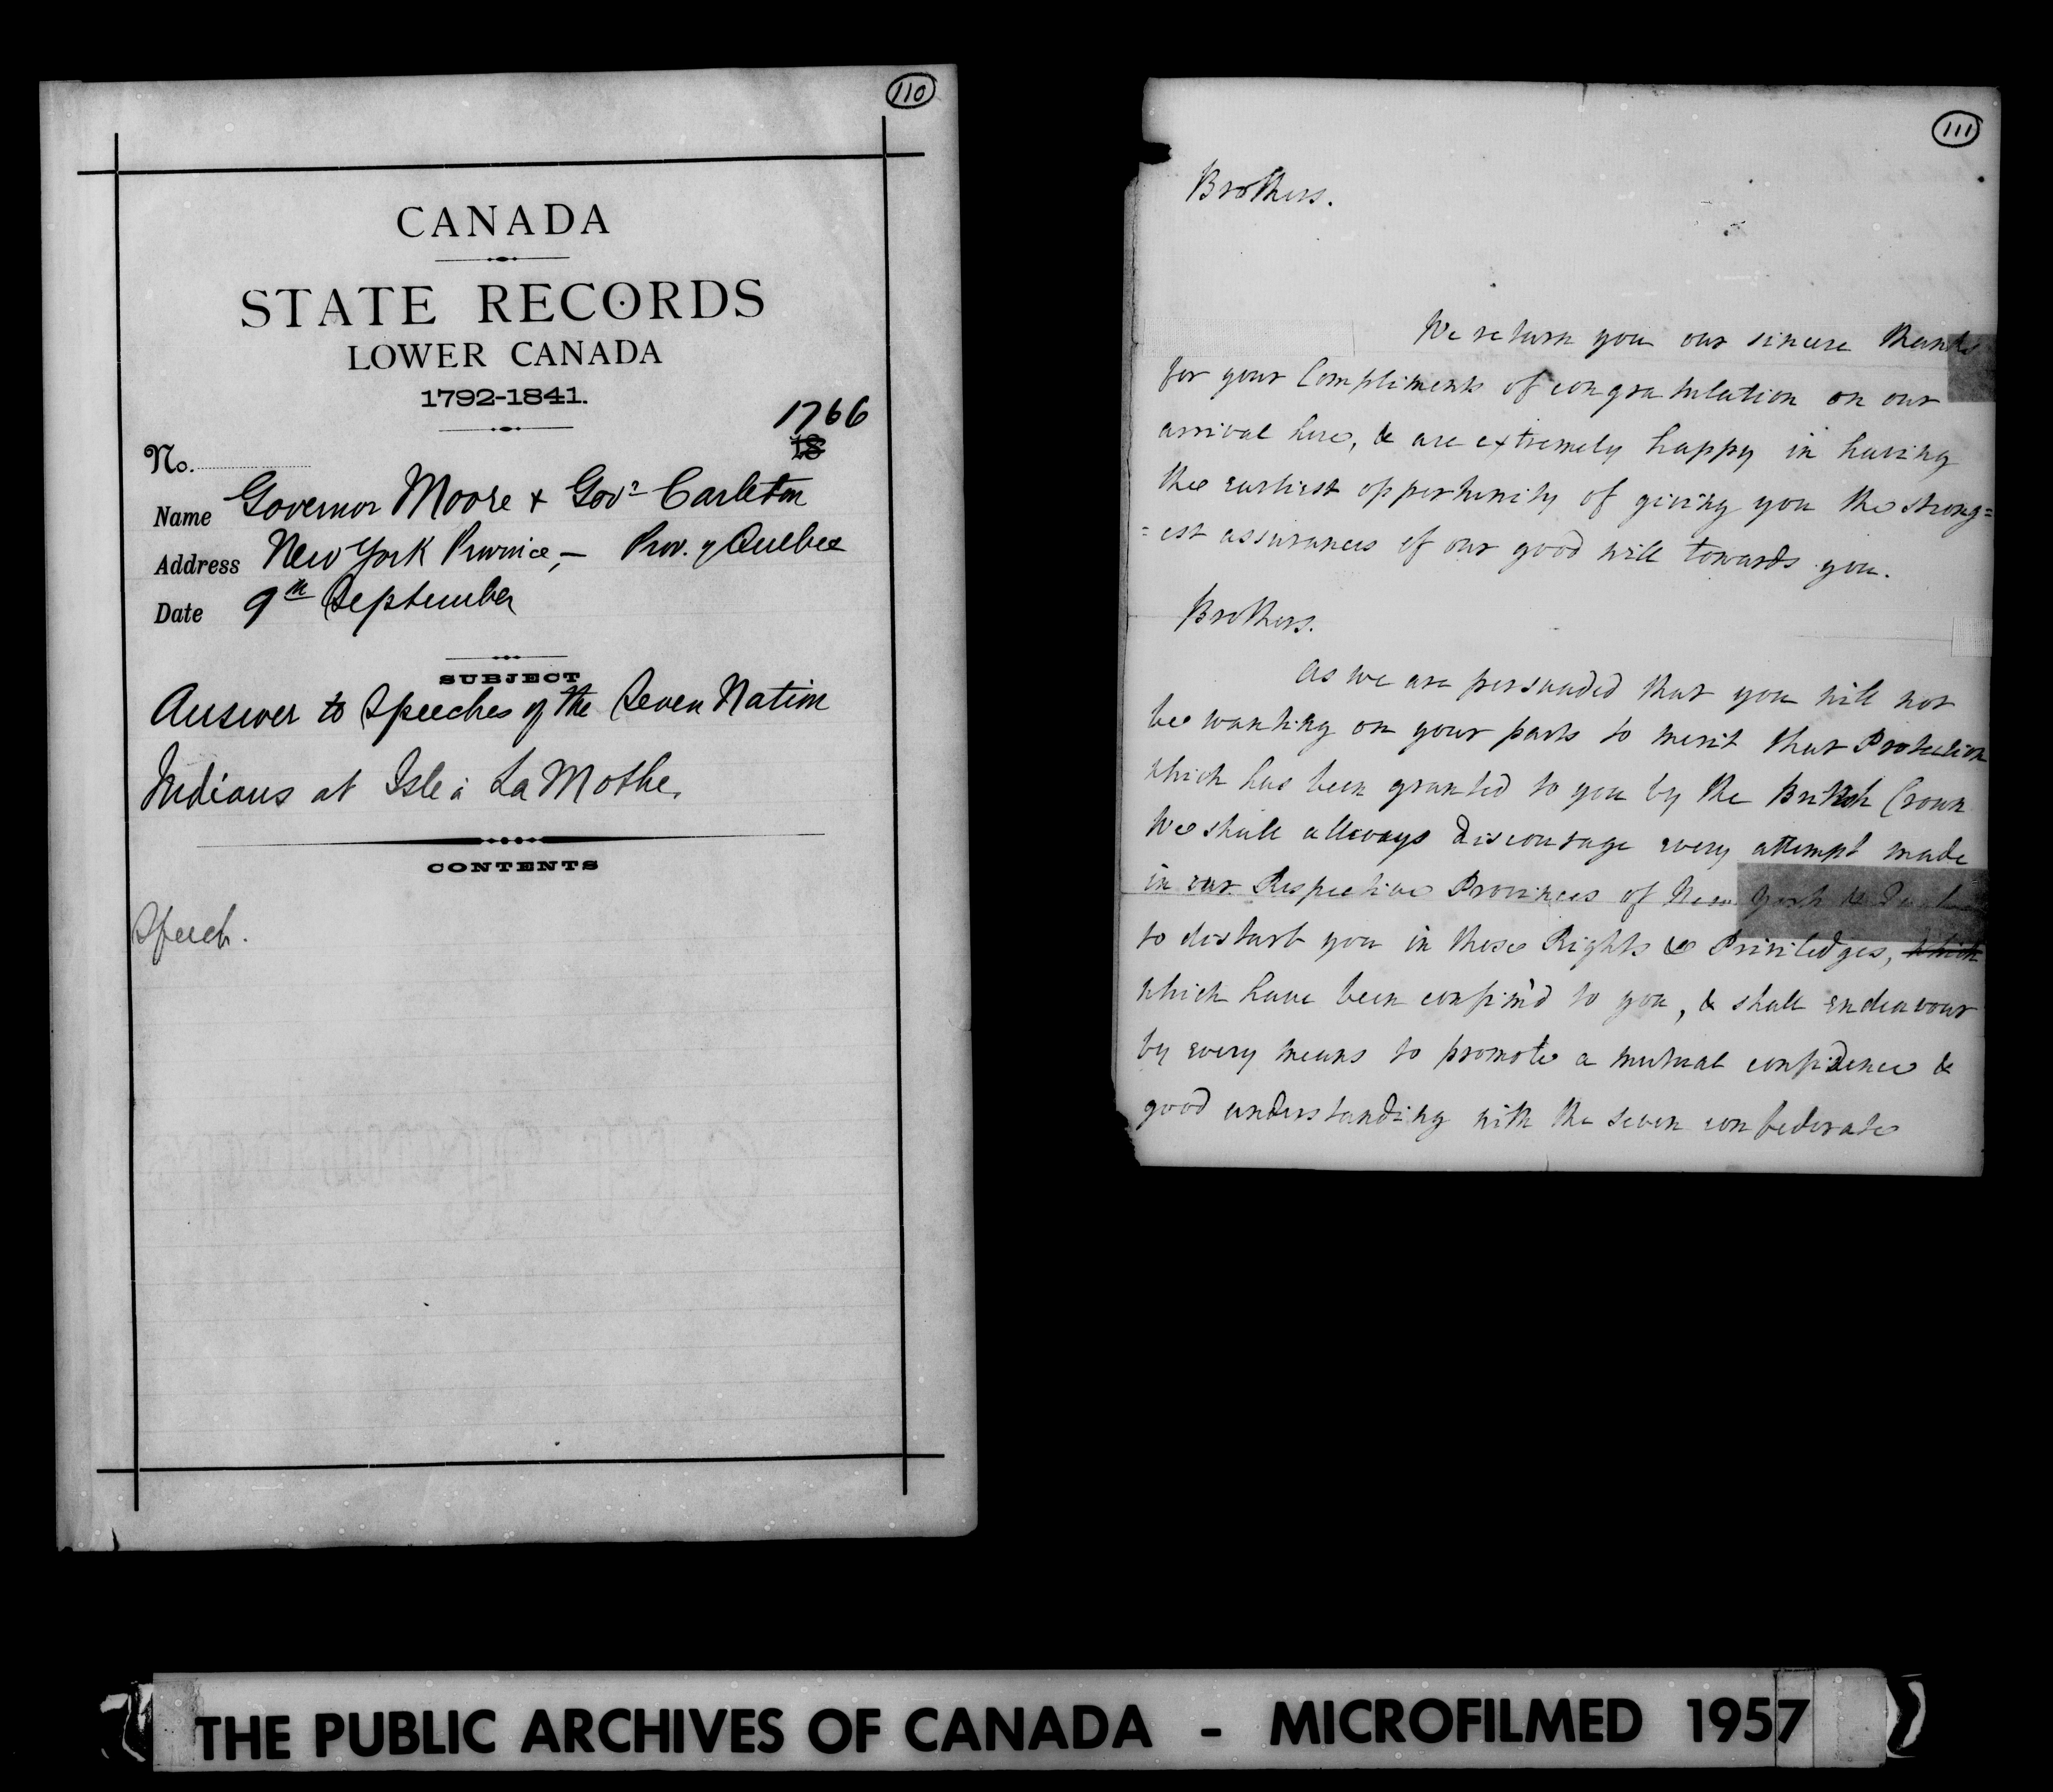 110
CANADA
STATE RECORDS
LOWER CANADA
1792-1841.
1766
No. 18
Name Governor Moore & Govr Carleton
Address New York Province, – Prov. of Quebec
Date 9th September
SUBJECT
Answer to Speeches of the Seven Nation
Indians at Isle à La Mothe.
CONTENTS
Speech.
111
Brothers.
We return you our sincere thanks
for your Compliments of congratulation on our
arrival here, & are extremely happy in having
the earliest opportunity of giving you the strong=
=est assurances of our good will towards you.
Brothers.
As we are persuaded that you will not
be wanting on your parts to merit that Protection
which has been granted to you by the British Crown
We shall allways discourage every attempt made
in our Respective Provinces of New York &
to disturb you in those Rights & Priviledges, which
which have been confirm'd to you, & shall endeavour
by every means to promote a mutual confidence &
good understanding with the seven confederate
THE PUBLIC ARCHIVES OF CANADA - MICROFILMED 1957